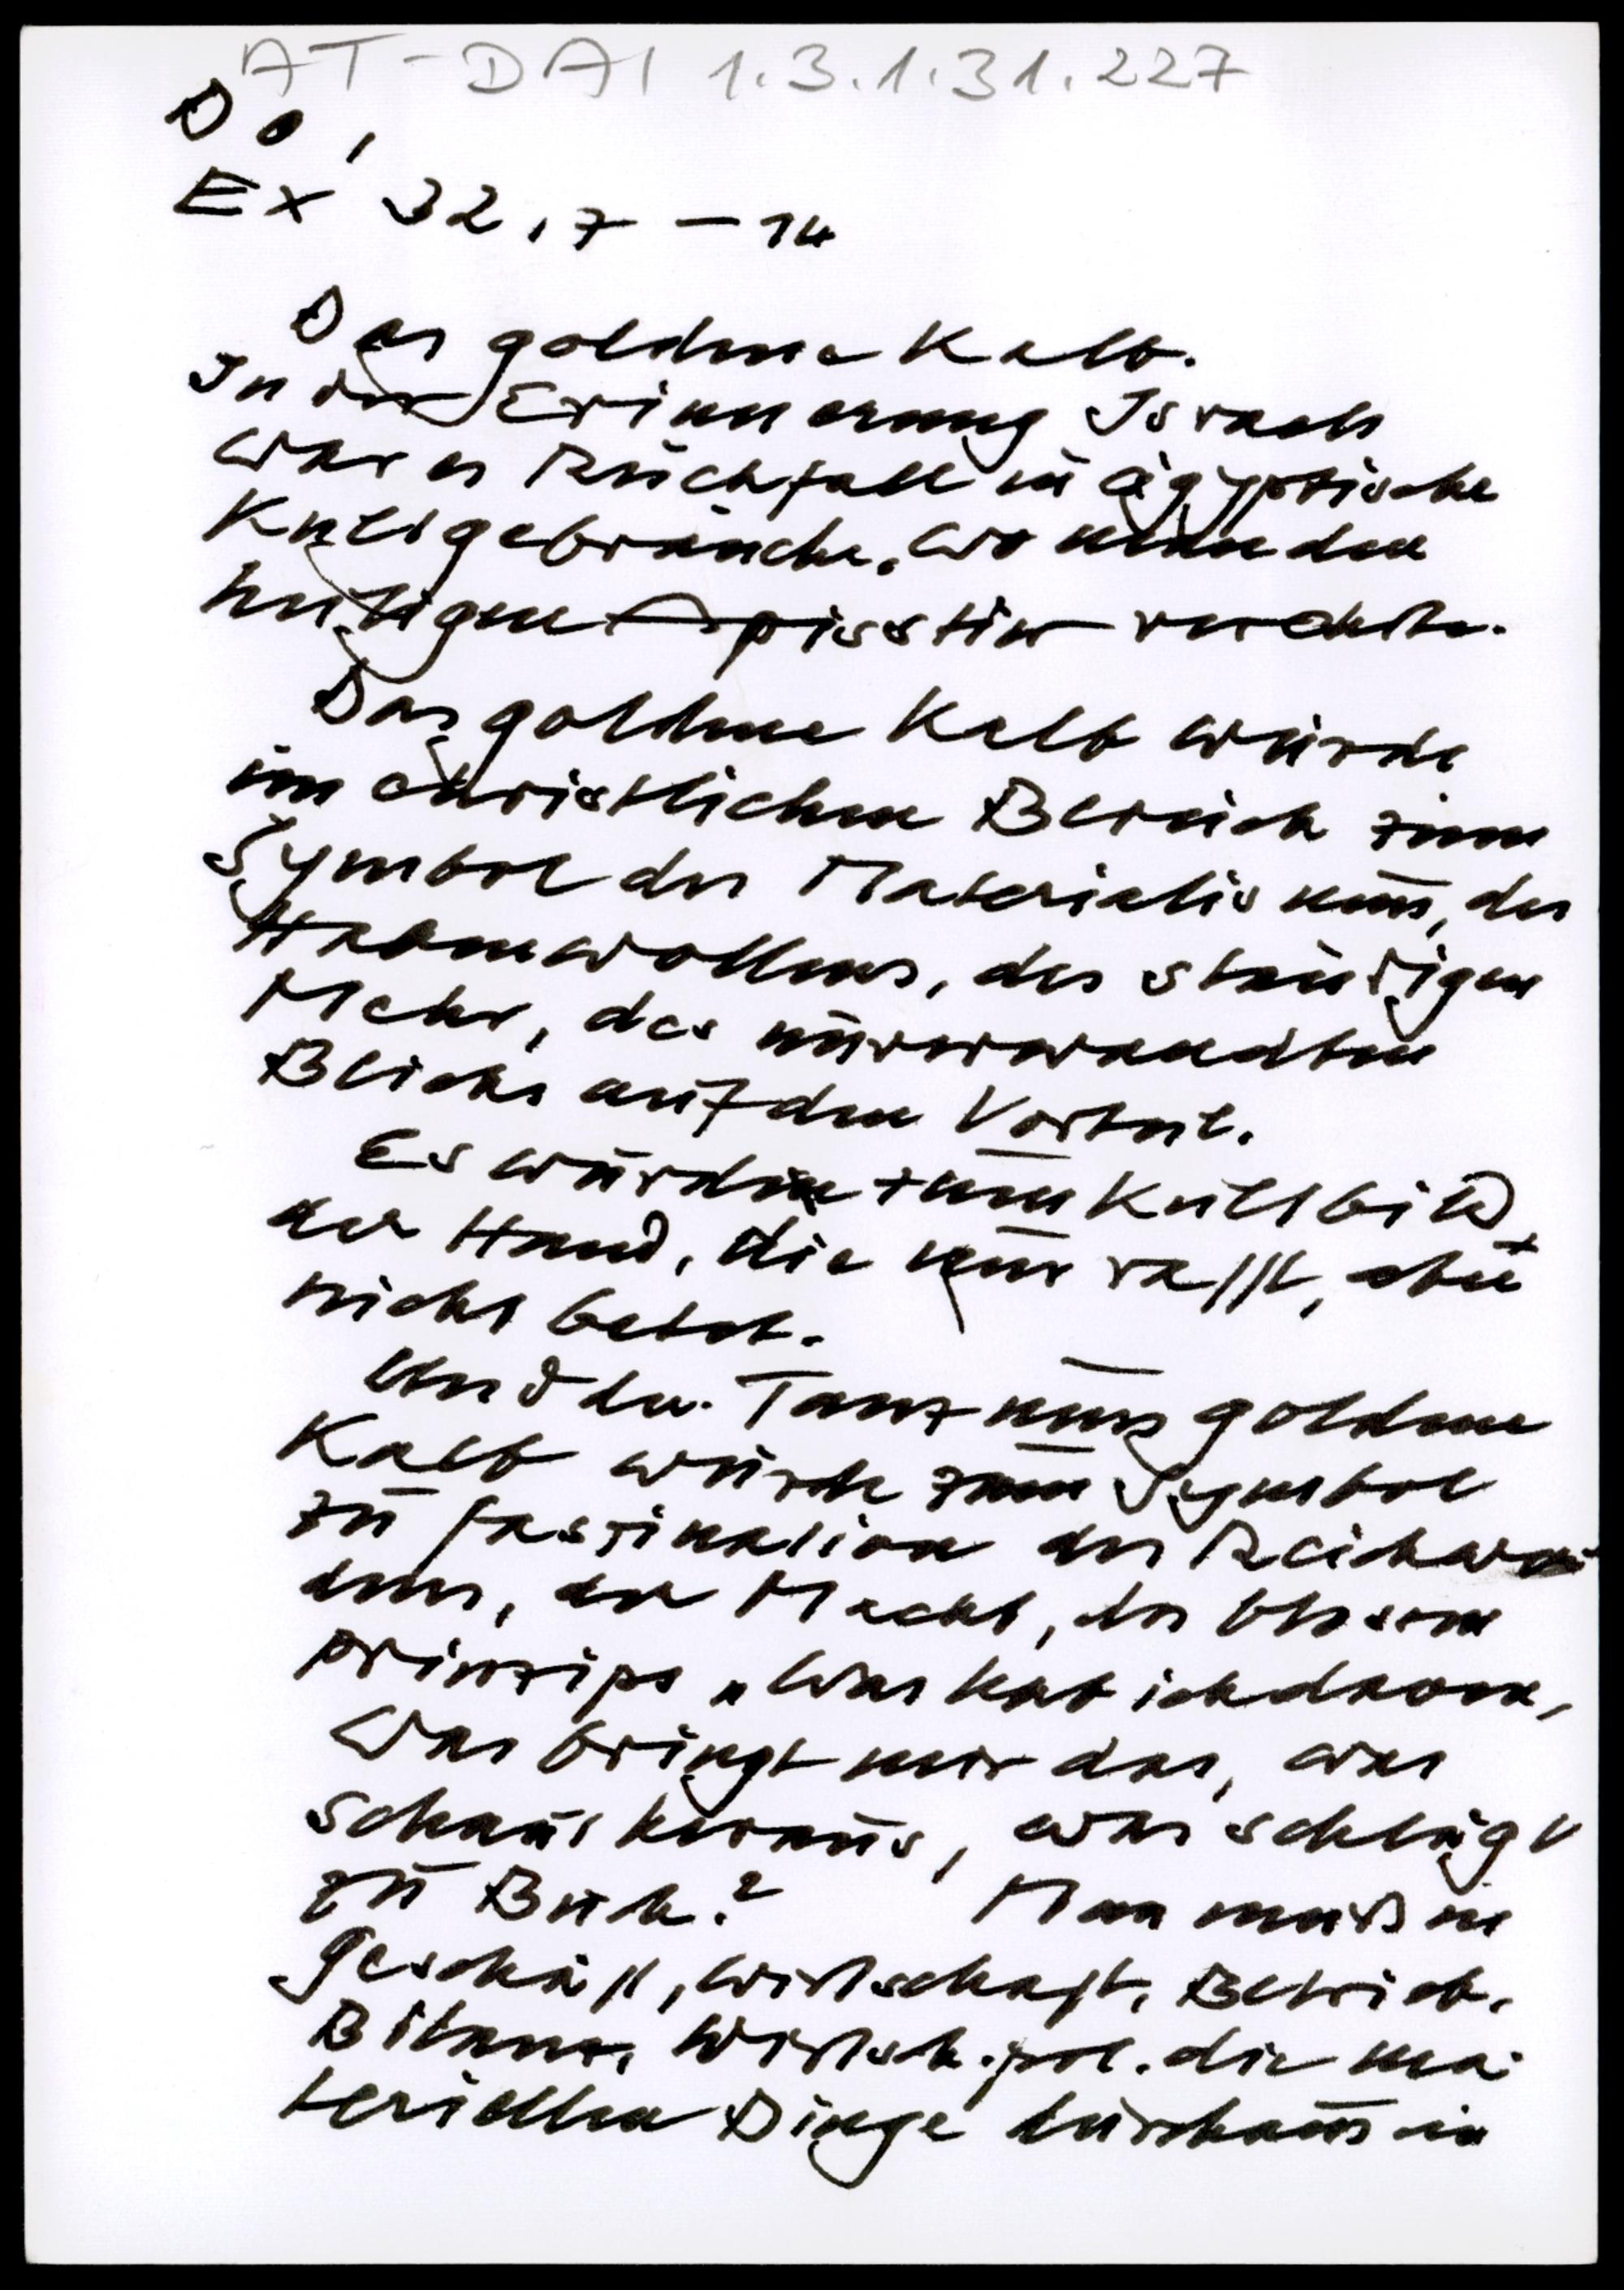 AT-DAI 1.3.1.31.227
Do,
Ex 32,7-14
Das goldene Kalb.
In der Erinnerung Israels
war es Rückfall in ägyptische
Kultgebräuche, wo man den
heiligen Apisstier verehrte.
Das goldene Kalb wurde
im christlichen Bereich zum
Symbol des Materialismus, des
Habenwollens, des ständigen
Mehr, des unverwandten
Blicks auf den Vorteil.
Es wurde zum Kultbild
der Hand, die nur rafft, aber
nicht betet.
Und der Tanz ums goldene
Kalb wurde zum Symbol
zu Faszination des Reich
tums, der Macht, des
prinzips „Was hab ich davon,
was bringt mir das, was
schaut heraus, was schlägt
zu Buch?   Man muß in
Geschäft, Wirtschaft, Betrieb,
Bilanz, Wirtsch.pol. die ma-
teriellen Dinge durchaus in